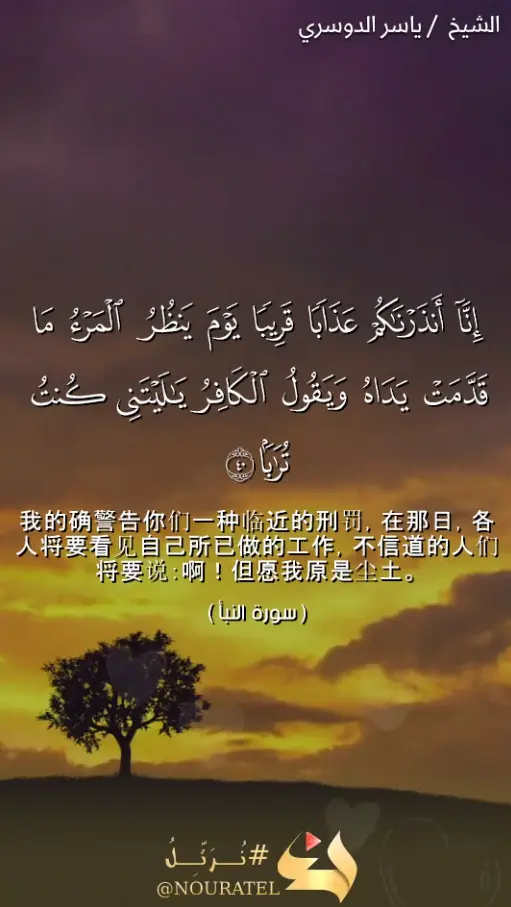 الشيخ / ياسر الدوسري
إِنَّآ أَنذَرْنَٰكُمْ عَذَابًا قَرِيبًا يَوْمَ يَنظُرُ ٱلْمَرْءُ مَا
قَدَّمَتْ يَدَاهُ وَيَقُولُ ٱلْكَافِرُ يَٰلَيْتَنِى كُنتُ
تُرَٰبًۢا ٤٠
我的确警告你们一种临近的刑罚, 在那日, 各
人将要看见自己所已做的工作, 不信道的人们
将要说:啊！但愿我原是尘土。
( سورة النبأ )
#نُـرَتِّـلُ
@NOURATEL